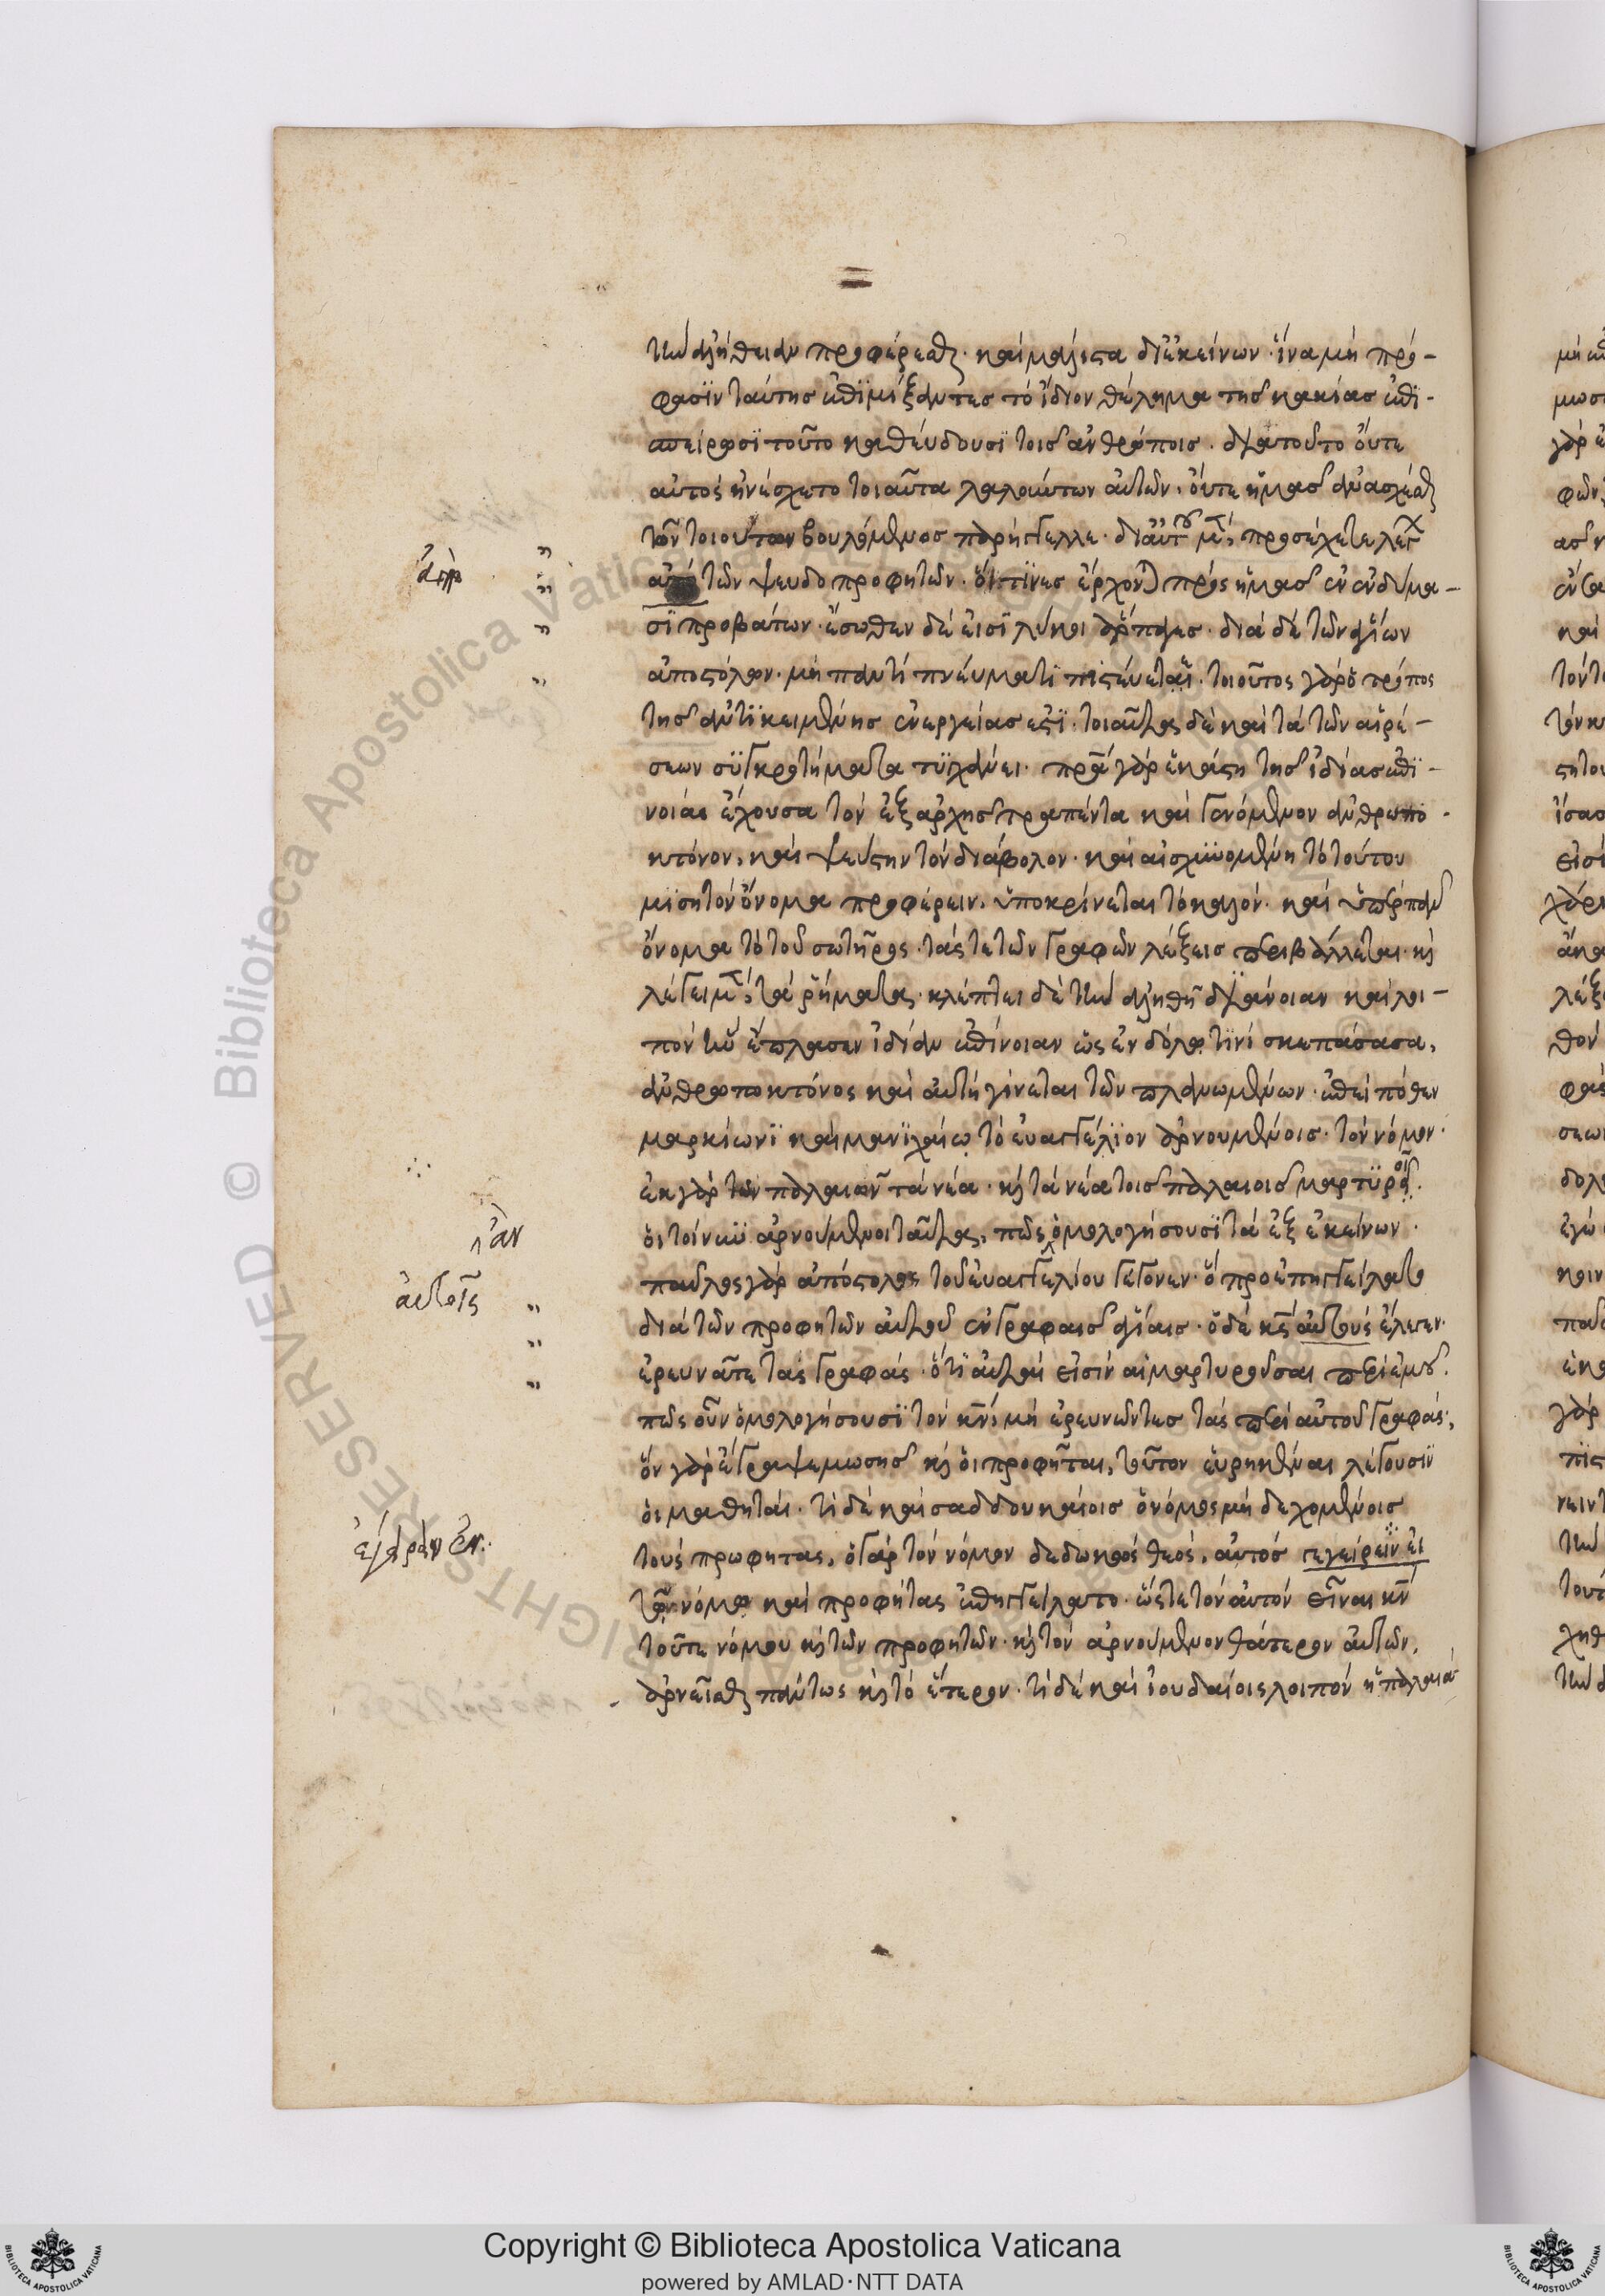 τὴν ἀλήθειαν προφέρεσθαι· καὶ μάλιστα δι' ἐκείνων· ἵνα μὴ πρό-
φασϊν ταύτης ἐπϊμίξαντες τὸ ἴδιον θέλημα τῆς κακίας ἐπι-
σπείρωσϊ τοῦτο καθεύδουσϊ τοῖς ἀνθρώποις. διὰ τοῦτο οὔτε
αὐτὸς ἠνέσχετο τοιαῦτα λαλούντων αὐτῶν, οὔτε ἡμᾶς ἀνασχέσθαι
τῶν τοιούτων βουλόμενος παρήγγελλε· δι' αὐτοῦ μὲν, προσέχετε λέγων
ἀπὸ τῶν ψευδοπροφητῶν· οἵτϊνες ἔρχονται πρὸς ἡμᾶς ἐν ἐνδύμα-
σϊ προβάτων· ἔσωθεν δέ εἰσϊ λύκοι ἅρπαγες· διὰ δὲ τῶν ἁγίων
ἀποστόλων· μὴ παντὶ πνεύματϊ πιστεύεται. τοιοῦτος γὰρ ὁ τρόπος
τῆς ἀντϊκειμένης ἐνεργείας ἐστϊ. τοιαῦτα δὲ καὶ τὰ τῶν αἱρέ-
σεων σϋγκροτήματα τϋγχάνει· πρᾶ γὰρ ἑκάστη τῆς ἰδίας ἐπϊ-
νοίας ἔχουσα τὸν ἐξ ἀρχῆς τραπέντα καὶ γενόμενον ἀνθρωπο
κτόνον, καὶ ψεύστην τὸν διάβολον· καὶ αἰσχϋνομένη τὸ τούτου
μϊσητὸν ὄνομα προφέρειν, ὑποκρίνεται τὸ καλόν· καὶ ὑπὲρ πᾶν
ὄνομα τὸ τοῦ σωτῆρος· τάς τε τῶν γραφῶν λέξεις περιβάλλεται· καὶ
λέγει μὲν τὰ ῥήματα, κλέπτει δὲ τὴν ἀληθῆ διάνοιαν καὶ λοι-
πὸν ἣν ἔπλασεν ἰδίαν ἐπίνοιαν ὡς ἐν δόλῳ τϊνὶ σκεπάσασα,
ἀνθρωποκτόνος καὶ αὐτὴ γίνεται τῶν πλανωμένων· ἐπεὶ πόθεν
μαρκίωνϊ καὶ μανϊχαίῳ τὸ εὐαγγέλϊον ἀρνουμένοις τὸν νόμον·
ἐκ γὰρ τῶν παλαιῶν τὰ νέα· καὶ τὰ νέα τοῖς παλαιοῖς μαρτϋρεῖ.
οἱ τοίνϋν ἀρνούμενοι ταῦτα, πῶς ὁμολογήσουσϊ τὰ ἐξ ἐκείνων·
παῦλος γὰρ ἀπόστολος τοῦ εὐαγγελίου γέγονεν· ὃ προεπηγγείλατο
διὰ τῶν προφητῶν αὐτοῦ ἐν γραφαῖς ἁγίαις· ὁ δὲ κς αὐτοὺς ἔλεγεν·
ἐρευνᾶτε τὰς γραφάς· ὅτϊ αὐταί εἰσϊν αἱ μαρτυροῦσαι περὶ ἐμοῦ.
πῶς οὖν ὁμολογήσουσϊ τὸν κν, μὴ ἐρευνῶντες τὰς περὶ αὐτοῦ γραφάς;
ὃν γὰρ ἔγραψε μωσῆς καὶ οἱ προφῆται, τοῦτον εὑρηκέναι λέγουσϊν
οἱ μαθηταί· τί δὲ καὶ σαδδουκαίοις ὁ νόμος μὴ δεχομένοις
τοὺς πρωφητας, ὁ γὰρ τὸν νόμον δεδωκὼς θεὸς, αὐτὸς
τῷ νόμῳ καὶ προφήτας ἐπηγγείλατο· ὥστε τὸν αὐτὸν εἶναι κν
τοῦτε νόμου καὶ τῶν προφητῶν· καὶ τὸν ἀρνούμενον θάτερον αὐτῶν,
ἀρνεῖσθαι πάντως καὶ τὸ ἕτερον· τί δὲ καὶ ἰουδαίοις λοιπὸν ἡ παλαιά
ἀπὸ
ἂν
αὐτοῖς
Copyright © Biblioteca Apostolica Vaticana
powered by AMLAD·NTT DATA
RIGHTS RESERVED © Biblioteca Apostolica Vaticana